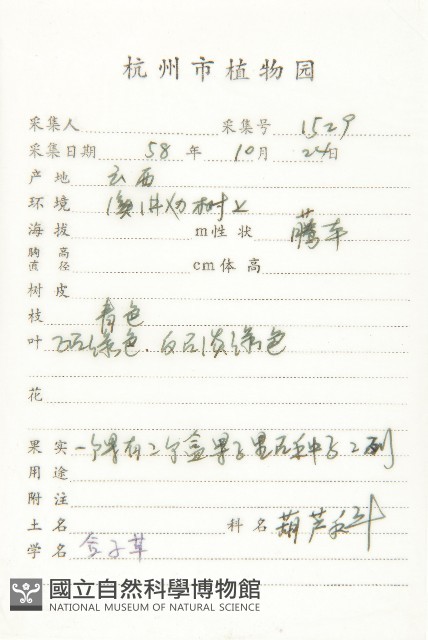 杭州市植物园
采集人 采集号 1529
采集日期 58 年 10 月 24 日
产地 云西
环境 树上
海拔 m 性状 藤本
胸高直径 cm 体高
树皮
枝 青色
叶 正面绿色.反面淡绿色
花
果实 一个果有二个盒果子里面种子2列
用途
附注
土名 科名 葫芦科
学名 合子草
國立自然科學博物館
NATIONAL MUSEUM OF NATURAL SCIENCE